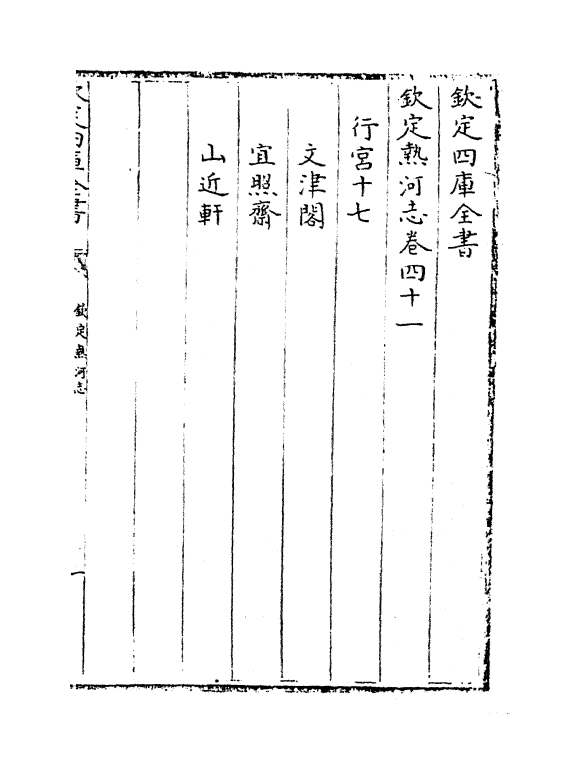 欽定四庫全書
欽定熱河志卷四十一
行宮十七
文津閣
宜照齋
山近軒
欽定四庫全書
欽定熱河志
一